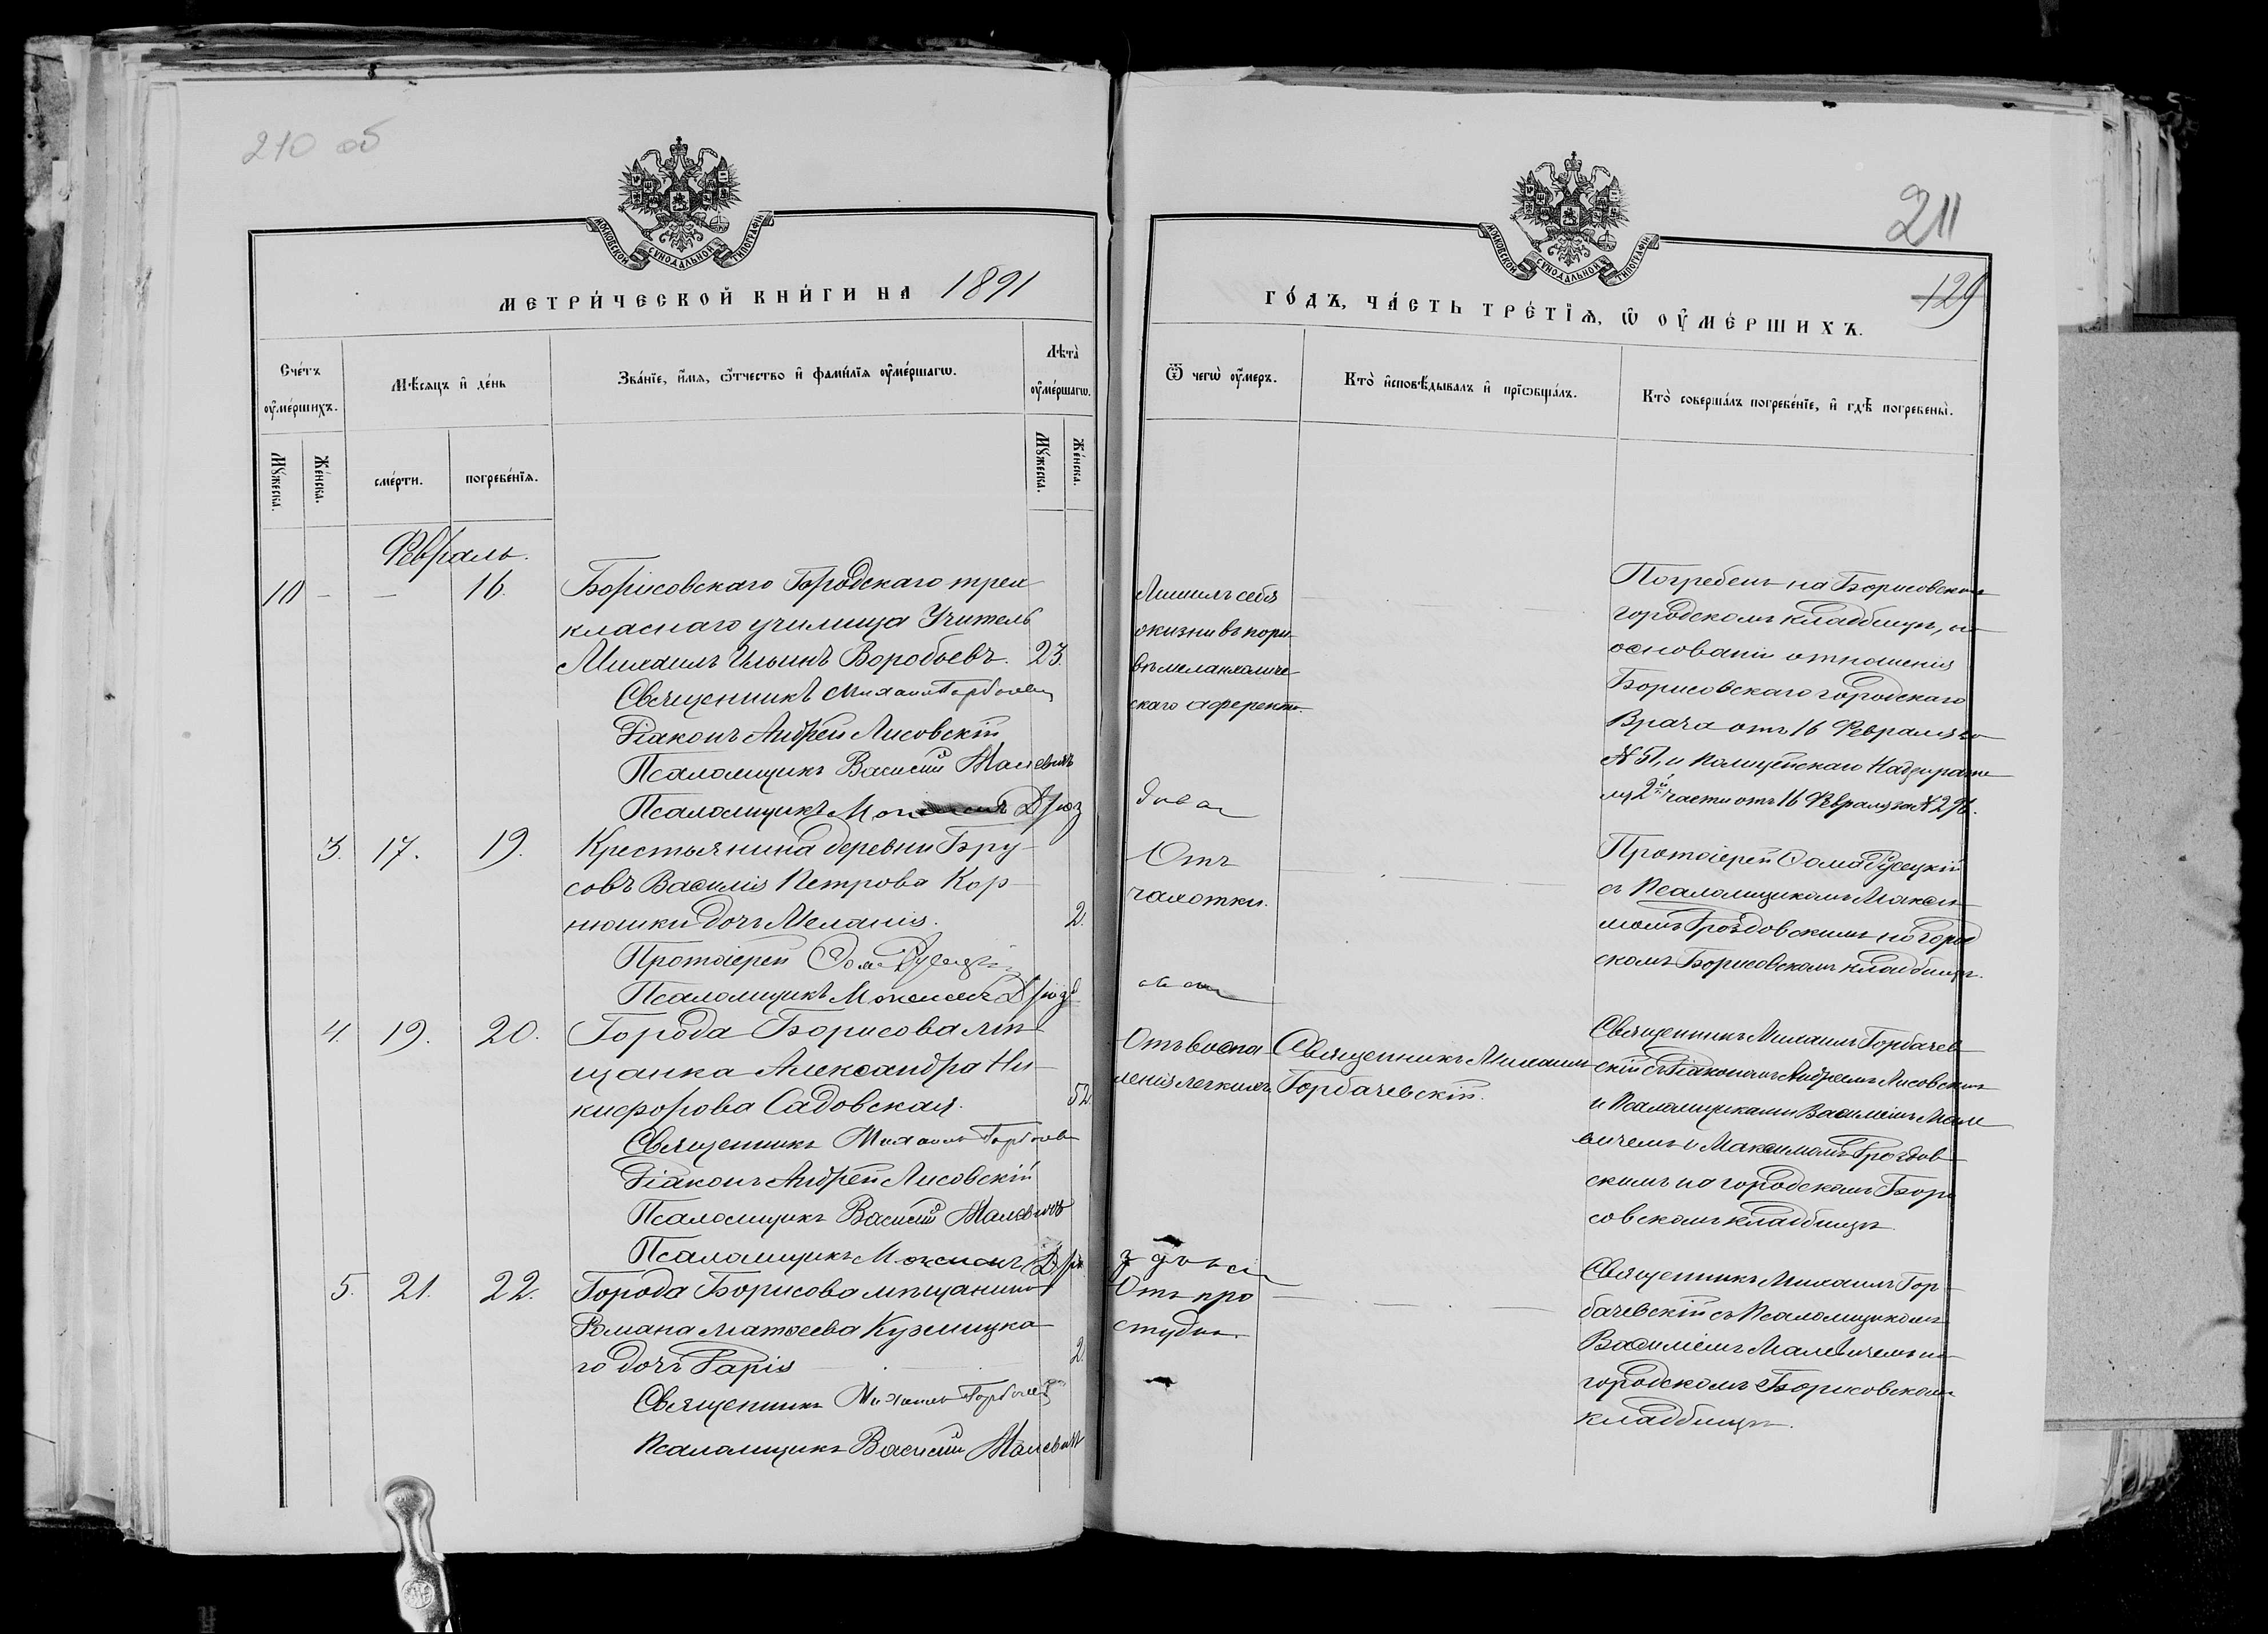 210 об
МОСКОВСКОЙ СУНОДАЛЬНОЙ ТИПОГРАФІИ
МЕТРИ́ЧЕСКОЙ КНИ́ГИ НА 1891
Сче́тъ оу҆ме́ршихъ.
Мѣ́сяцъ и҆ де́нь
Зва́нїе, и҆́мя, ѻ҆́тчество и҆ фами́лїя оу҆ме́ршагѡ.
Лѣта̀ оу҆ме́ршагѡ.
Мꙋ́жеска.
Же́нска.
сме́рти.
погребе́нїѧ.
Мꙋ́жеска.
Же́нска.
Февраль.
10 - - 16. Борисовскаго Городскаго трех
класнаго училища Учитель
Михаилъ Ильинъ Воробьевъ. 23.
Священникъ Михаилъ
Діаконъ Андрей Лисовскій
Псаломщикъ Василій Малевичъ
Псаломщикъ
3. 17. 19. Крестьянина деревни Бру-
совъ Василія Петрова Кор-
нюшки дочь Меланія. 2.
Протоіерей Ѳома
Псаломщикъ Максимъ
4. 19. 20. Города Борисова мѣ-
щанка Александра Ни-
кифорова Садовская. 52.
Священникъ Михаилъ
Діаконъ Андрей Лисовскій
Псаломщикъ Василій Малевичъ
Псаломщикъ Максимъ
5. 21. 22. Города Борисова мѣщанина
Романа Матѳеева Кузмицка-
го дочь Дарія 2.
Священникъ Михаилъ
Псаломщикъ Василій Малевичъ
211
129
МОСКОВСКОЙ СУНОДАЛЬНОЙ ТИПОГРАФІИ
ГО́ДЪ, ЧА́СТЬ ТРЕ́ТЇѦ, Ѡ҆ ОУ҆МЕ́РШИХЪ.
Ѿ чегѡ̀ оу҆́меръ.
Кто̀ и҆сповѣ́дывалъ и҆ прїѡбща́лъ.
Кто̀ соверша́лъ погребе́нїе, и҆ гдѣ̀ погребены̀.
Лишилъ себя
жизни въ поры-
вѣ меланхоличе-
скаго
Погребенъ на Борисовскомъ
городскомъ кладбищѣ, на
основаніи отношенія
Борисовскаго городскаго
Врача отъ 16 Февраля за
№ 51, и Полицейскаго Надзирате
ля 2й части отъ 16 Февраля за № 296.
Отъ
чахотки.
Протоіерей Ѳома
съ Псаломщикомъ Макси-
момъ Гроздовскимъ на город
скомъ Борисовскомъ кладбищѣ.
Отъ воспа-
ленія легкихъ
Священникъ Михаилъ
Горбачевскій.
Священникъ Михаилъ Горбачев-
скій съ Діакономъ Андреемъ Лисовскимъ
и Псаломщиками Василіемъ Мале
вичемъ и Максимомъ Гроздов-
скимъ на городскомъ Бори
совскомъ кладбищѣ
Отъ про-
студы.
Священникъ Михаилъ Гор-
бачевскій съ Псаломщикомъ
Василіемъ Малевичемъ на
городскомъ Борисовскомъ
кладбищѣ.